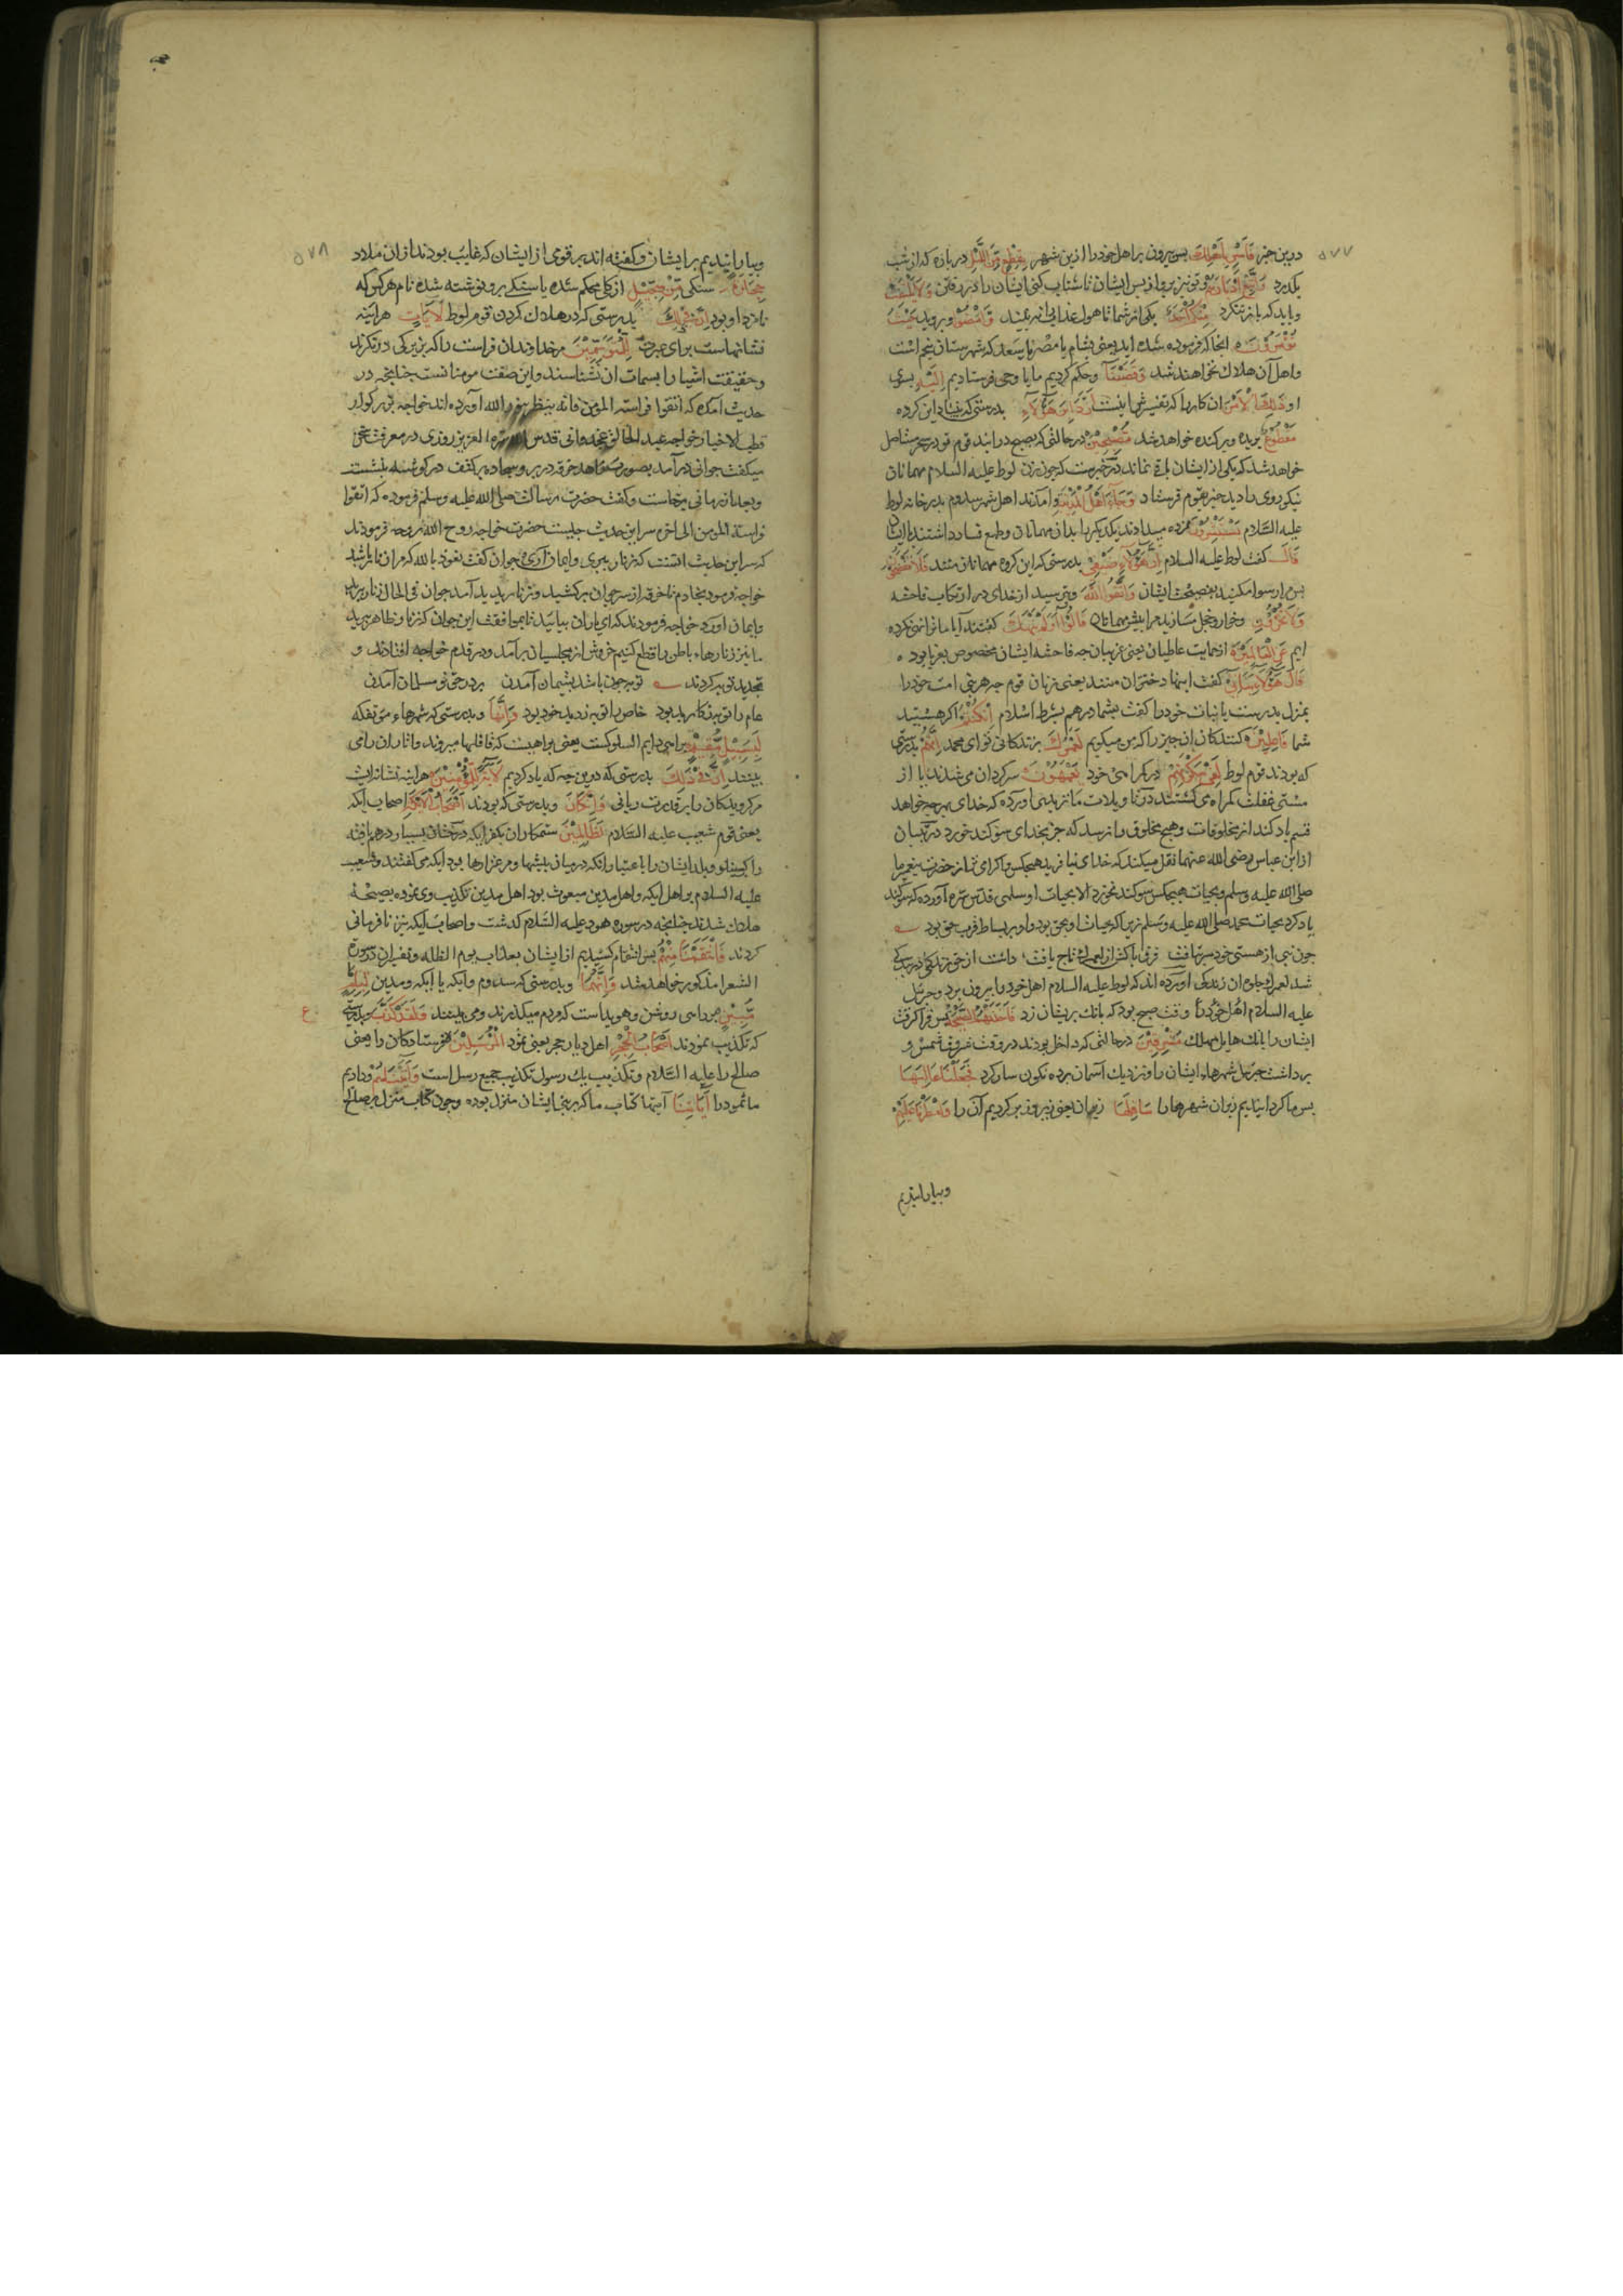 ۵۷۷
درین خبر فَاَسْرِ بِاَهْلِكَ پس بیرون بر اهل خود را ازین شهر بِقِطْعٍ مِّنَ اللَّیْلِ در پاره که از شب
بگذرد وَاتَّبِعْ اَدْبَارَهُمْ و تو نیز برو از پس ایشان تا شتاب کنی ایشان را در رفتن وَلَا یَلْتَفِتْ
و باید که باز ننگرد مِنْكُمْ اَحَدٌ یکی از شما تا هول عذاب را نه بیند وَامْضُوْا و بروید حَیْثُ
تُؤْمَرُوْنَ انجا که فرموده شده اید یعنی بشام یا مصر یا سعد که شهرستان پنجم است
و اهل آن هلاک نخواهند شد وَقَضَیْنَآ و حکم کردیم ما یا وحی فرستادیم اِلَیْهِ بسوی
او ذٰلِكَ الْاَمْرَ ان کار را که تفسیرش اینست اَنَّ دَابِرَ هٰؤُلَآءِ بدرستی که بنیاد این کرده
مَقْطُوْعٌ بریده و برکنده خواهد شد مُّصْبِحِیْنَ در حالتی که بصبح درایند قوم تو در سحر مستاصل
خواهد شد که یکی از ایشان باقی نماند در خبرست که چون زن لوط علیه السلام مهمانان
نیکوروی را دید خبر بقوم فرستاد وَجَآءَ اَهْلُ الْمَدِیْنَةِ و امدند اهل شهر سدوم بدر خانه لوط
علیه السلام یَسْتَبْشِرُوْنَ مژده میدادند یکدیگر را بدان مهمانان و طمع فساد داشتند با ایشان
قَالَ گفت لوط علیه السلام اِنَّ هٰؤُلَآءِ ضَیْفِیْ بدرستی که این کروه مهمانان منند فَلَا تَفْضَحُوْنِ
پس مرا رسوا مکنید بفضیحت ایشان وَاتَّقُوا اللّٰهَ و بترسید از خدای در ارتکاب فاحشه
وَلَا تُخْزُوْنِ و خوار و خجل مسازید مرا پیش مهمانان قَالُوْا اَوَلَمْ نَنْهَكَ گفتند آیا ما ترا نهی نکرده
ایم عَنِ الْعَالَمِیْنَ از حمایت عالمیان یعنی غریبان چه فاحشه ایشان مخصوص بغربا بود
قَالَ هٰؤُلَآءِ بَنَاتِیْ گفت اینها دختران منند یعنی زنان قوم چه هر نبی امت خود را
بمنزل پدرست یا بنات خود را گفت بشما دهم بشرط اسلام اِنْ كُنْتُمْ اگر هستید
شما فَاعِلِیْنَ کنندکان ان چیز را که من میکویم لَعَمْرُكَ بزندکانی تو ای محمد اِنَّهُمْ بدرستی
که بودند قوم لوط لَفِیْ سَكْرَتِهِمْ در کمراهی خود یَعْمَهُوْنَ سرکردان می شدند یا از
مستی غفلت کمراه می کشتند در تاویلات ماتریدی اورده که خدای بهرچه خواهد
قسم یاد کند از مخلوقات و هیچ مخلوق را نرسد که جز بخدای سوکند خورد در تبیان
از ابن عباس رضی الله عنهما نقل میکند که خدای نیافرید هیچکس را کرامی تر از حضرت پیغمبر ما
صلی الله علیه وسلم و بحیات هیچکس سوکند نخورد الا بحیات او سلمی قدس سره آورده که سوکند
یاد کرد بحیات محمد صلی الله علیه وسلم زیرا که حیات او بحق بود و او بر بساط قرب حق بود
چون نبی از هستی خود سر بتافت فرق پاکش از لعمرک تاج یافت داشت از حق زندکی در بندکی
شد لعمرک جلوه آن زندکی اورده اند که لوط علیه السلام اهل خود را بیرون برد و جبرئیل
علیه السلام وقت صبح بود که بانک بریشان زد فَاَخَذَتْهُمُ الصَّیْحَةُ پس فرا کرفت
ایشان را بانک هایل مهلک مُشْرِقِیْنَ در حالتی که داخل بودند در وقت شروق شمس و
برداشت جبرئیل شهرهاء ایشان را و نزدیک آسمان برده نکون سار کرد فَجَعَلْنَا عَالِیَهَا
پس ما کردانیدیم زبران شهرها را سَافِلَهَا زیران یعنی زیر و زبر کردیم آن را وَاَمْطَرْنَا عَلَیْهِمْ
و ببارانیدیم
۵۷۸
و ببارانیدیم بر ایشان و کفته اند بر قومی از ایشان که غایب بودند ازان بلاد
حِجَارَةً سنکی مِّنْ سِجِّیْلٍ از کل محکم شده یا سنکی برو نوشته شده نام هرکس که
نامزد او بود اِنَّ فِیْ ذٰلِكَ بدرستی که در هلاک کردن قوم لوط لَاٰیَاتٍ هراینه
نشانهاست برای عبرت لِّلْمُتَوَسِّمِیْنَ مر خداوندان فراست را که بزیرکی در نکرند
و حقیقت اشیا را بسمات ان بشناسند و این صفت مومنانست چنانچه در
حدیث امده که اتقوا فراسة المؤمن فانه ینظر بنور الله اورده اند خواجه بزرکوار
قطب الاخیار خواجه عبد الخالق غجدوانی قدس الله سره العزیز روزی در معرفت سخن
میکفت جوانی در آمد بصورت زاهد خرقه در بر و سجاده بر کتف در کوشه بنشست
و بعد از زمانی برخاست و کفت حضرت رسالت صلی الله علیه وسلم فرموده که اتقوا
فراسة المومن الی اخره سر این حدیث چیست حضرت خواجه روح الله روحه فرمودند
که سر این حدیث انست که زنار ببری و ایمان آری جوان کفت نعوذ بالله که مرا زنار باشد
خواجه فرمود بخادم تا خرقه از سر جوان برکشید و زنار پدید آمد جوان فی الحال زنار ببرید
و ایمان اورد خواجه فرمودند که ای یاران بیایید تا بموافقت این جوان که زنار ظاهر ببرید
ما نیز زنارهاء باطن را قطع کنیم خروش از مجلسیان برآمد و در قدم خواجه افتادند و
تجدید توبه کردند توبه چون باشد پشیمان آمدن بر در حق نو مسلمان آمدن
عام را توبه ز کار بد بود خاص را توبه ز دید خود بود وَاِنَّهَا و بدرستی که شهرهاء موتفکه
لَبِسَبِیْلٍ مُّقِیْمٍ براهی دایم السلوکست یعنی براهیست که قافلها میروند و اثار ان را می
بینند اِنَّ فِیْ ذٰلِكَ بدرستی که درین چه که یاد کردیم لَاٰیَةً لِّلْمُؤْمِنِیْنَ هراینه نشانه ایست
مر کرویدکان را بر قدرت ربانی وَاِنْ كَانَ و بدرستی که بودند اَصْحَابُ الْاَیْكَةِ اصحاب ایکه
یعنی قوم شعیب علیه السلام لَظَالِمِیْنَ ستمکاران بکفر ایکه درختان بسیار درهم یافته
را کویند و بلد ایشان را باعتبار انکه در میان بیشها و مرغزارها بود ایکه می کفتند و شعیب
علیه السلام بر اهل ایکه و اهل مدین مبعوث بود اهل مدین تکذیب وی نموده بصیحه
هلاک شدند چنانچه در سوره هود علیه السلام کذشت و اصحاب ایکه نیز نافرمانی
کردند فَانْتَقَمْنَا مِنْهُمْ پس انتقام کشیدیم از ایشان بعذاب یوم الظله و تفسیر ان در سوره
الشعرا مذکور خواهد شد وَاِنَّهُمَا و بدرستی که سدوم و ایکه یا ایکه و مدین لَبِاِمَامٍ
مُّبِیْنٍ براهی روشن و هویداست که مردم میکذرند و می بینند وَلَقَدْ كَذَّبَ و بدرستی
ع
که تکذیب نمودند اَصْحَابُ الْحِجْرِ اهل دیار حجر یعنی ثمود الْمُرْسَلِیْنَ فرستادکان را یعنی
صالح را علیه السلام و تکذیب یک رسول تکذیب جمیع رسل است وَاٰتَیْنَاهُمْ و دادیم
ما ثمود را اٰیَاتِنَا آیتها کتاب ما که بر نبی ایشان منزل بوده و چون کتاب منزل بر صالح